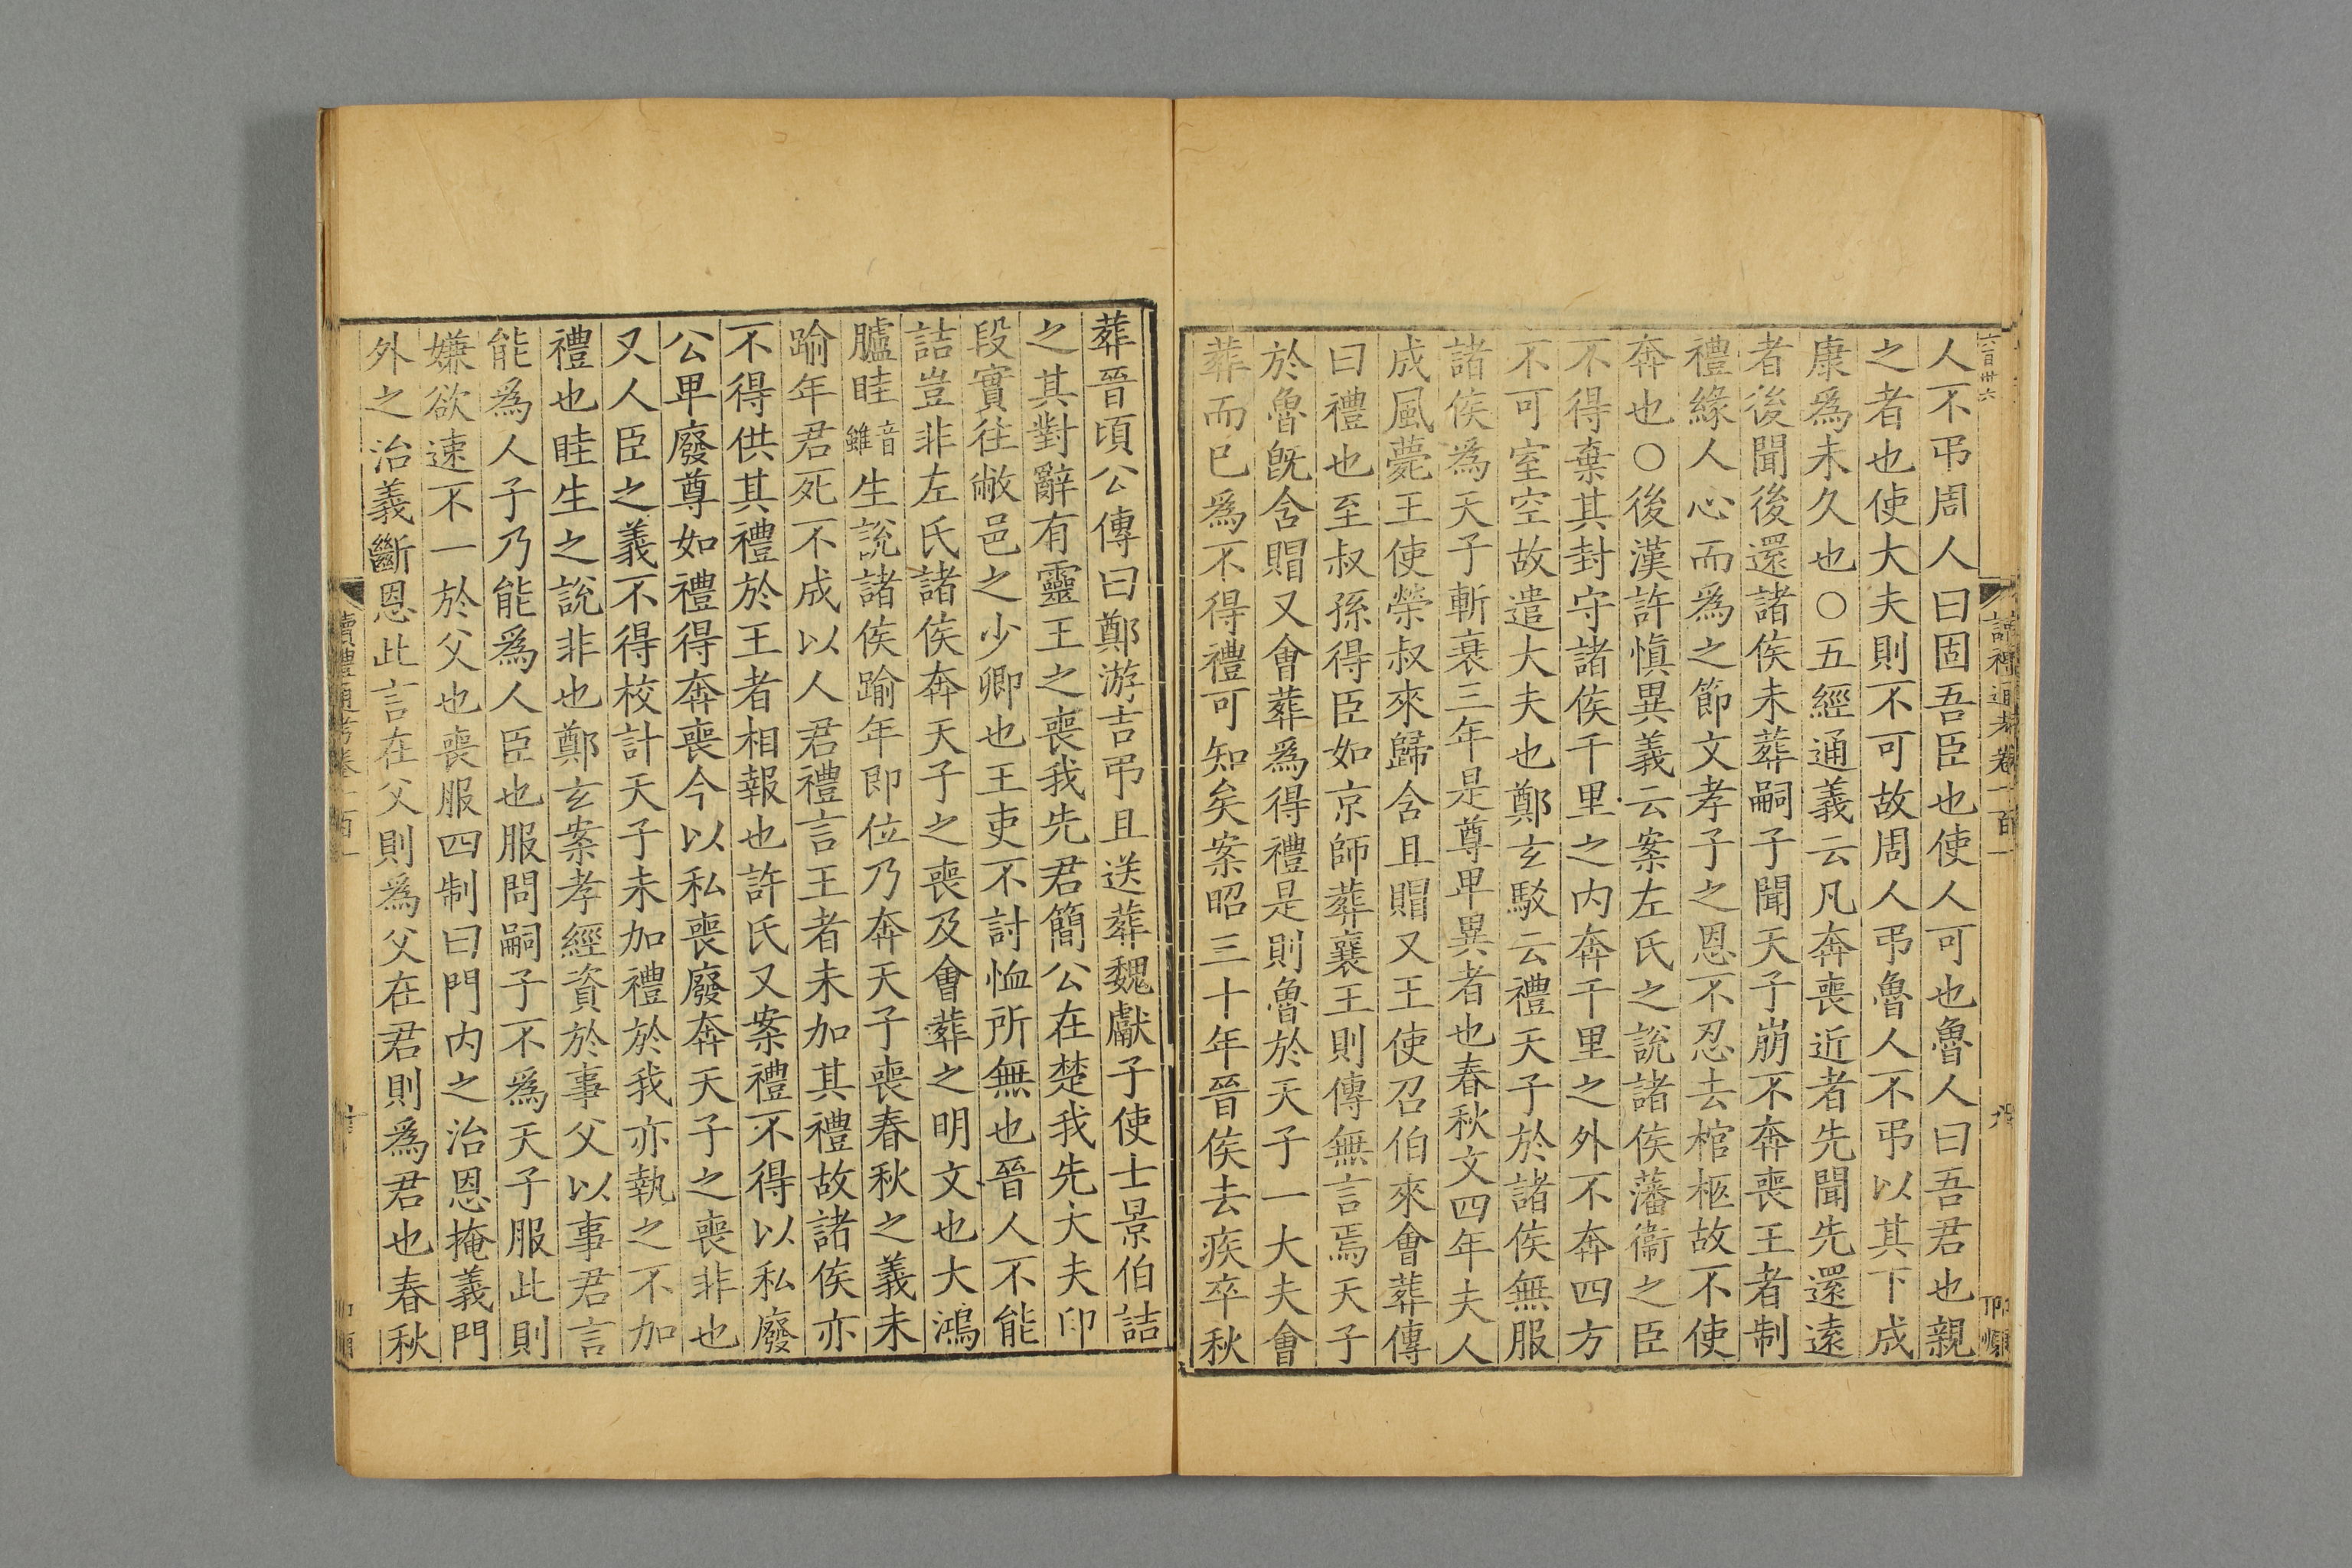 六百卅六
讀禮通考卷一百一
人不弔周人曰固吾臣也使人可也魯人曰吾君也親
之者也使大夫則不可故周人弔魯人不弔以其下成
康爲未久也○五經通義云凡奔喪近者先聞先還遠
者後聞後還諸侯未葬嗣子聞天子崩不奔喪王者制
禮緣人心而爲之節文孝子之恩不忍去棺柩故不使
奔也○後漢許愼異義云案左氏之說諸侯藩衞之臣
不得棄其封守諸侯千里之内奔千里之外不奔四方
不可空空故遣大夫也鄭玄駁云禮天子於諸侯無服
諸侯爲天子斬衰三年是尊卑異者也春秋文四年夫人
成風薨王使榮叔來歸含且賵又王使召伯來會葬傳
曰禮也至叔孫得臣如京師葬襄王則傳無言焉天子
於魯旣含賵又會葬爲得禮是則魯於天子一大夫會
葬而已爲不得禮可知矣案昭三十年晉侯去疾卒秋
葬晉頃公傳曰鄭游吉弔且送葬魏獻子使士景伯詰
之其對辭有靈王之喪我先君簡公在楚我先大夫印
段實往敝邑之少卿也王吏不討恤所無也晉人不能
詰豈非左氏諸侯奔天子之喪及會葬之明文也大鴻
臚眭音雖生說諸侯踰年即位乃奔天子喪春秋之義未
踰年君死不成以人君禮言王者未加其禮故諸侯亦
不得供其禮於王者相報也許氏又案禮不得以私廢
公卑廢尊如禮得奔喪今以私喪廢奔天子之喪非也
又人臣之義不得校計天子未加禮於我亦執之不加
禮也眭生之說非也鄭玄案孝經資於事父以事君言
能爲人子乃能爲人臣也服問嗣子不爲天子服此則
嫌欲速不一於父也喪服四制曰門内之治恩掩義門
外之治義斷恩此言在父則爲父在君則爲君也春秋
讀禮通考卷一百一